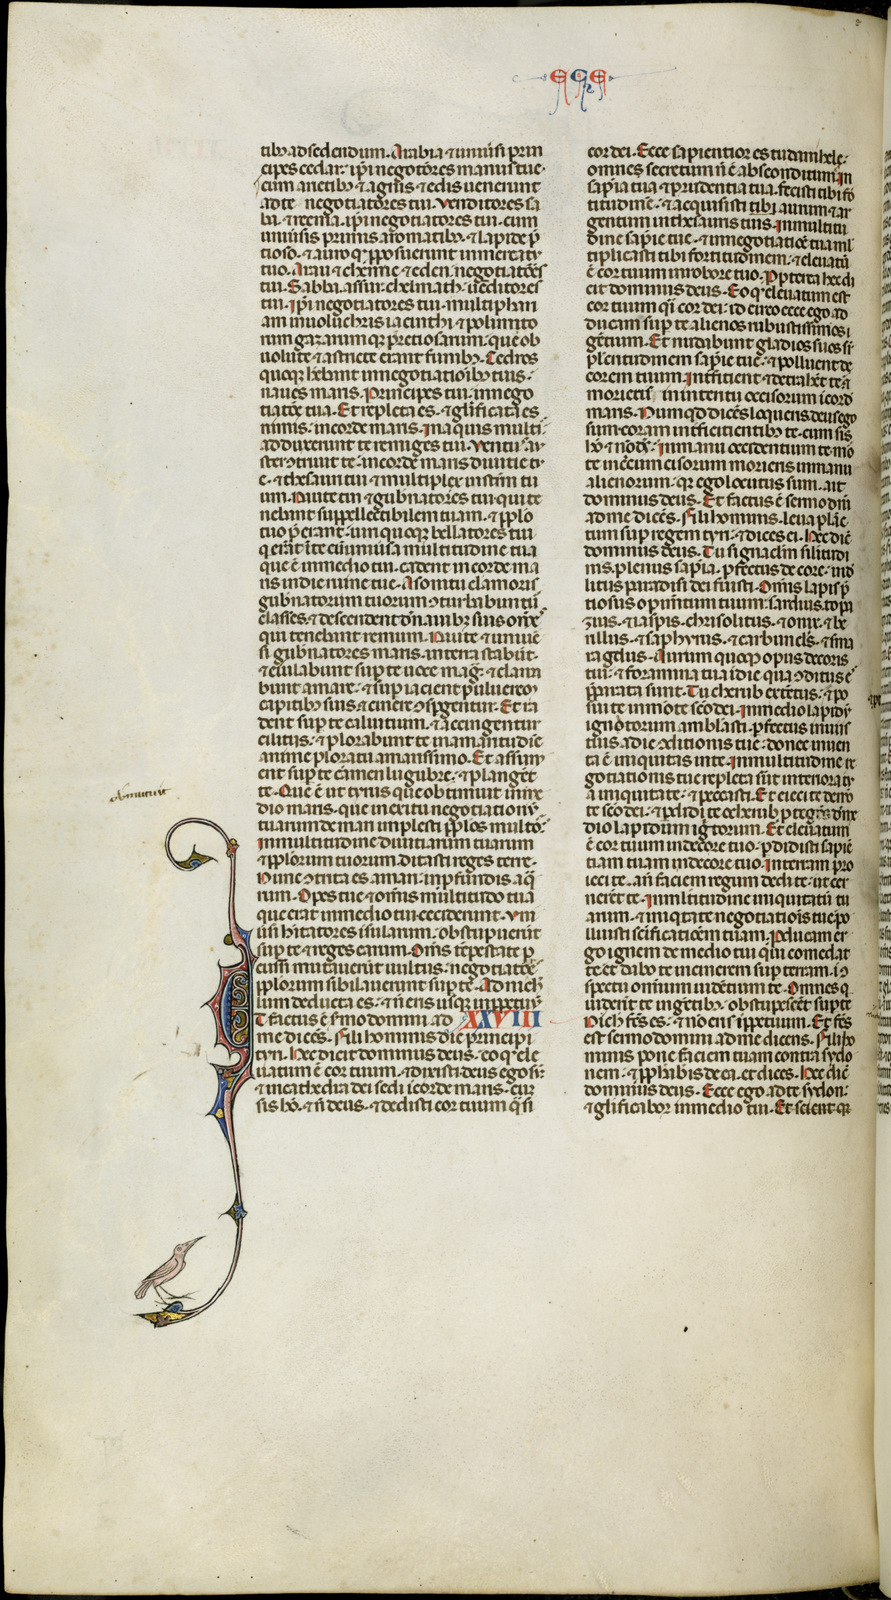 EZE
tib; ad sedendum. Arabia ⁊ uniuͥsi prin
cipes cedar: ip̄i negotōres manus tue.
cum arietib; ⁊ agnis ⁊ edis uenerunt
ad te negotiatores tui. Venditores sa
ba. ⁊ reema. ip̄i negotiatores tui. cum
uniuͥsis primis aromatib;. ⁊ lapide p̄
tioso. ⁊ auro q̄ p̄posuerunt in mercatu
tuo. Aran ⁊ chenne ⁊ eden negotiatōes
tui. Sabba. assur. chelmath. uēditores
tui. ip̄i negotiatores tui. multiphari
am inuolucris iacincthi ⁊ polimito
rum gazarum qȝ p̄ciosarum. que ob
uolute ⁊ astricte erant funib;. Cedros
quoqȝ habebant in negotiatioīb; tuis.
naues maris. Principes tui. in nego
tiatōe tua. Et repleta es. ⁊ glīficata es
nimis. in corde maris. In aquis multis
adduxerunt te remiges tui. Ventus au
ster ↄtriuit te. in corde maris diuitie tu
e. ⁊ thesauri tui ⁊ multiplex instm̄ tu
um. Naute tui ⁊ gubnatores tui. qui te
nebant suppellectilem tuam. ⁊ pplo
tuo p̄erant. uiri quoqȝ bellatores tui
q̄ erāt ī te cū uniuͥsa multitudine tua
que ē in medio tui. cadent in corde ma
ris in die ruine tue. A sonitu clamoris
gubnatorum tuorum ↄturbabuntur
classes. ⁊ descendent d̄ nauib; suis om̄s
qui tenebant remum. Naute ⁊ uniuͥ
si gubnatores maris. in terra stabūt.
⁊ eiulabunt sup te uoce mag. ⁊ clama
bunt amare. ⁊ sup iacient puluerem
capitib; suis ⁊ cinere ↄspgentur. Et ra
dent sup te caluitium. ⁊ accingentur
ciliciis. ⁊ plorabunt te in amaritudīe
anime ploratu amarissimo. Et assum
ent sup te carmen lugubre. ⁊ plangēt
te. Que ē ut tyrus que obtumuit in me
dio maris. que in exitu negotiationū
tuarum de mari implesti pplos multos.
In multitudine diuitiarum tuarum
⁊ pplorum tuorum. ditasti reges terre.
Nunc ↄtrita es a mari. in pfundis aq̄
rum. Opes tue ⁊ omīs multitudo tua
que erat in medio tui ceciderunt. Vni
uͥsi hitatores insularum. obstupuerūt
sup te ⁊ reges earum. Om̄s tēpestate p
cussi mutauerūt uultus. negotiatōes
pplorum sibilauerunt sup te. Ad nich
ilum deducta es. ⁊ n̄ eris usqȝ inppetuū
Et factus ē sͬmo domini ad XXVIII
me dicēs. Fili hominis dic principi
tyri. Hec dicit dominus deus. eo q̄ ele
uatum ē cor tuum. ⁊ dixisti deus ego sū.
⁊ in cathedra dei sedi ī corde maris. cū
sis hō. ⁊ n̄ deus. ⁊ dedisti cor tuum q̄si
cor dei. Ecce sapientior es tu daniele.
omnes secretum n̄ ē absconditum. In
sapīa tua ⁊ prudentia tua. fecisti tibi for
titudinē. ⁊ acquisisti tibi aurum ⁊ ar
gentum in thesauris tuis. In multitu
dine sapīe tue. ⁊ in negotiatiōe tua ml
tiplicasti tibi fortitudinem. ⁊ eleuatū
ē cor tuum in robore tuo. Pp̄terea hec di
cit dominus deus. Eo q̄ eleuatum est
cor tuum q̄si cor dei. idcirco ecce ego ad
ducam sup te alienos robustissimos
gentium. Et nudabunt gladios suos sup
plcritudinem sapīe tue. ⁊ polluent de
corem tuum. Interficient ⁊ detrahēt te. ⁊
morieris in interitu occisorum ī corde
maris. Nunqd dicēs loqueris deus ego
sum. coram interficientib; te. cum sis
hō ⁊ nō ds. in manu occidentium te mo
te incircumcisorum morieris in manu
alienorum. qȝ ego locutus sum. ait
dominus deus. Et factus ē sermo dn̄i
ad me dicēs. Fili hominis. leua plāc
tum sup regem tyri. ⁊ dices ei. Hec dic̄
dominus deus. Tu signaclm̄ silitudi
nis. plenus sapīa. pfectus decore. in de
liciis paradisi dei fuisti. Om̄is lapis p̄
tiosus opimētum tuum. sardius. topa
zius. ⁊ iaspis. chrisolitus. ⁊ onix. ⁊ be
rillus. ⁊ saphyrus. ⁊ carbuncls̄. ⁊ sma
ragdus. Aurum quoqȝ opus decoris
tui. ⁊ foramina tua ī die qua ↄditus es
p̄parata sunt. Tu cherub extētus. ⁊ po
sui te in mōte sc̄o dei. In medio lapidū
ignitorum ambulasti. pfectus in uiis
tuis a die ↄditionis tue. donec inuen
ta ē iniquitas in te. In multitudine ne
gotiationis tue repleta sūt interiora tu
a iniquitate. ⁊ peccasti. Et eieci te de mō
te sc̄o dei. ⁊ pdidi te o cherub ptegēs de me
dio lapidum ignitorum. Et eleuatum
ē cor tuum in decore tuo. pdidisti sapiē
tiam tuam in decore tuo. In terram pro
ieci te. an̄ faciem regum dedi te. ut cer
nerēt te. In multitudine iniquitatū tu
arum. ⁊ iniqtate negotiatiōis tue po
lluisti sc̄ificatiōem tuam. Pducam er
go ignem de medio tui qui comedat
te. et dabo te in cinerem sup terram. in ↄ
spectu omnium uidentium te. Omnes q̄
uiderint te in gētib;. obstupescēt sup te
Nichil fc̄s es. ⁊ nō eris ī ppetuum. Et fc̄s
est sermo domini ad me dicens. Fili ho
minis pone faciem tuam contra sydo
nem. ⁊ pphabis de ea. et dices. Hec dic̄
dominus deus. Ecce ego ad te sydon.
⁊ glīficabor in medio tui. Et scient qȝ
obmutuit